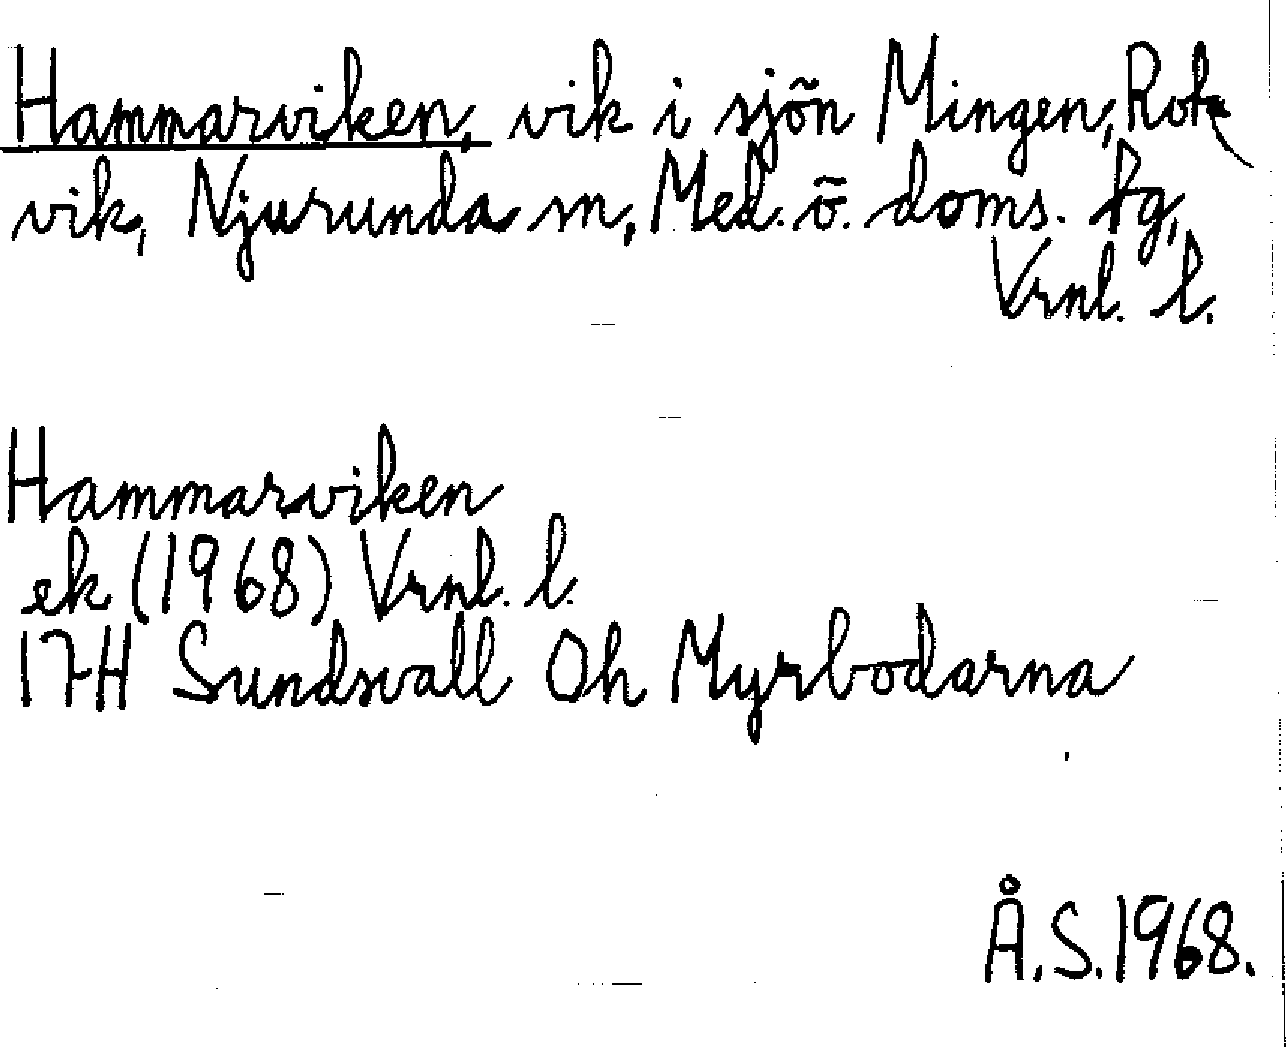 Hammarviken, vik i sjön Mingen, Rok
vik, Njurunda sn, Med. ö. doms. fg,
Vrnl. l.
Hammarviken
ek (1968) Vrnl. l.
17H Sundsvall Oh Myrbodarna
Å.S. 1968.